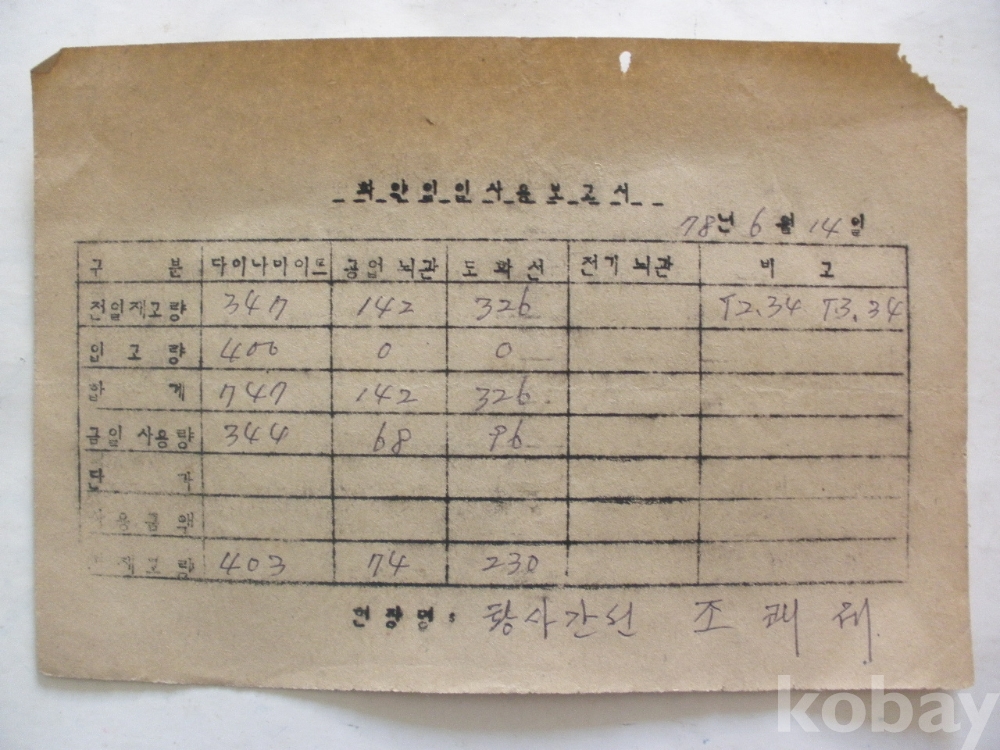 화약일일사용보고서
78년 6월 14일
구 분 다이나마이트 공업뇌관 도화선 전기뇌관 비 고
전일재고량 347 142 326 T2.34 T3.34
입고량 400 0 0
합 계 747 142 326
금일 사용량 344 68 96
단 가
사용금액
재고량 403 74 230
현장명: 황사간선 조
kobay